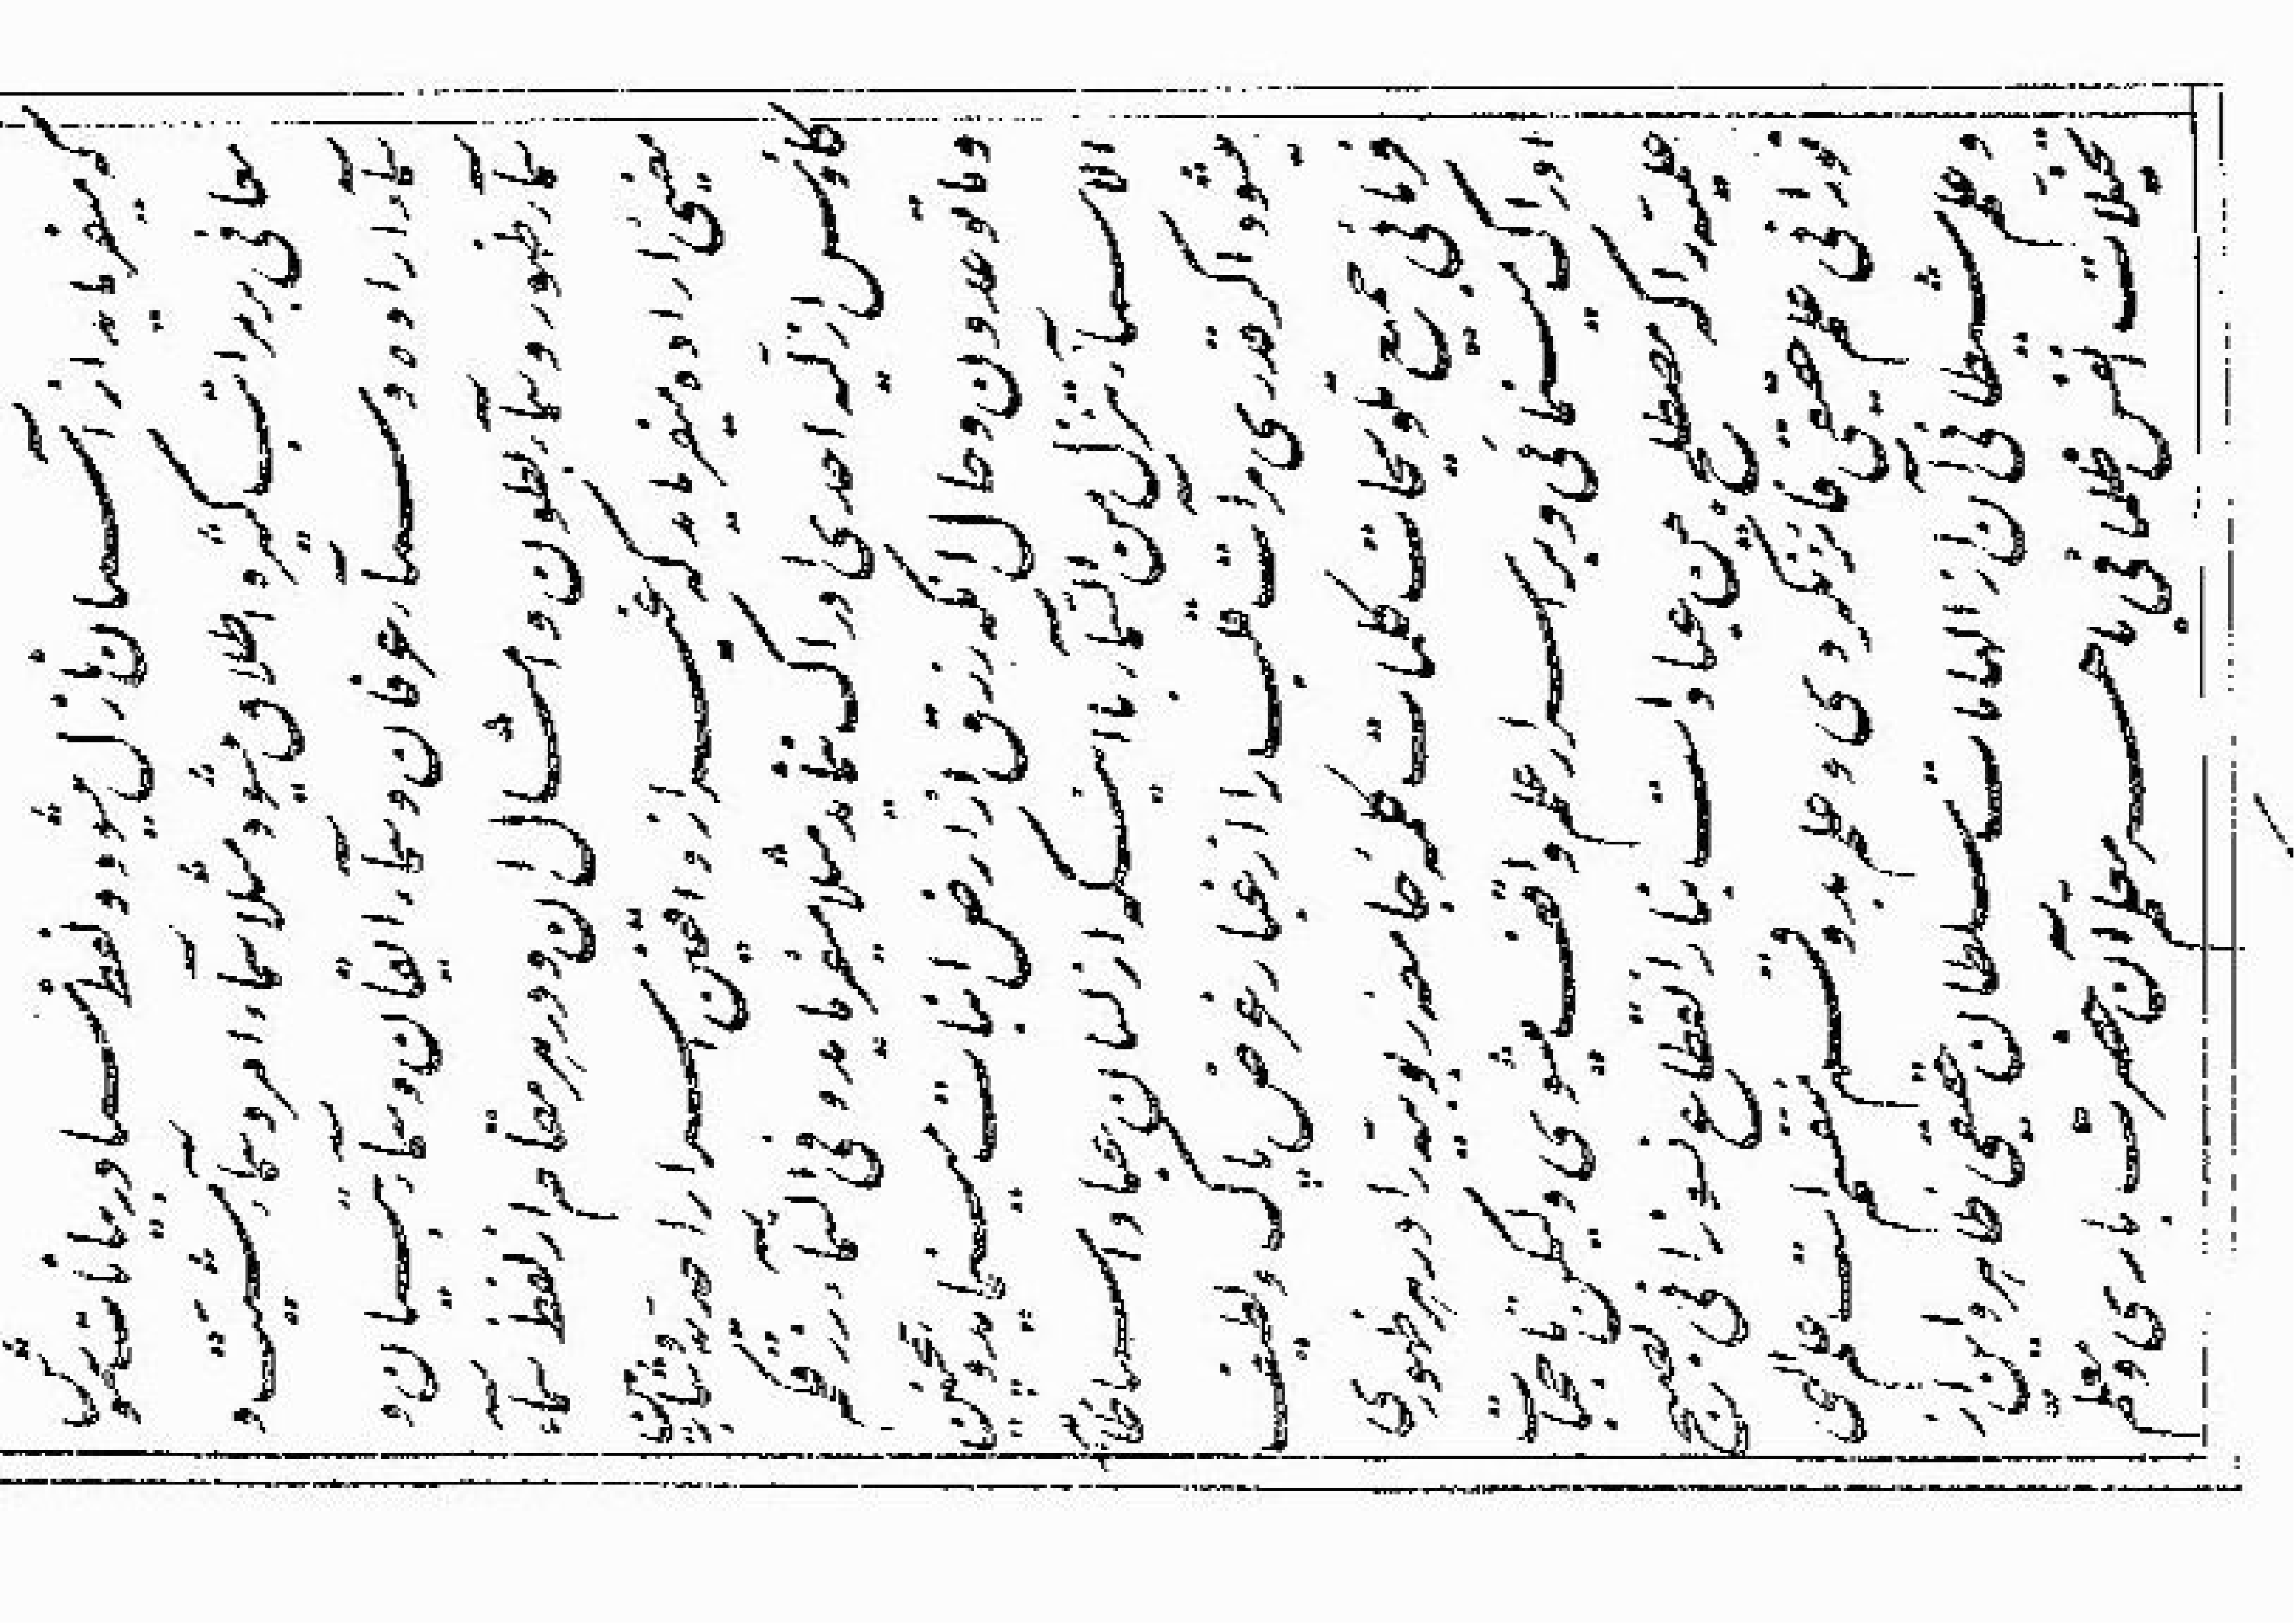 که میفرماید از آسمان نازل میشود و لفظ سما در بیانات شموس
معانی بر مراتب کثیره اطلاق میشود مثلا سماء امر و سماء مشیت و
سماء اراده و سماء عرفان و سماء ایقان و سماء تبیان و
سماء ظهور و سماء بطون و امثال آن و در هر مقام از لفظ سماء
معنیی اراده میفرماید که غیر از واقفین اسرار احدیه و شاربین
کاؤس ازلیه احدی ادراک ننماید مثلا میفرماید و فی السماء رزقکم
وما توعدون و حال آنکه رزق از ارض انبات مینماید و همچنین
الاسماء تنزل من السماء با اینکه از لسان عباد ظاهر
میشود اگر قدری مرات قلب را از غبار غرض پاک و لطیف
فرمائی جمیع تلویحات کلمات کلمه جامعه ربوبیه را در هر ظهوری
ادراک مینمائی و بر اسرار علم واقف شوی و لکن تا حجبات
علمیه را که مصطلح بین عباد است بنار انقطاع نسوزانی بصبح
نورانی علم حقیقی فائز نگردی و علم بدو قسم منقسم است علم الهی
و علم شیطانی آن از الهامات سلطان حقیقی ظاهر و این از
تخیلات انفس ظلمانی باهر معلم آن حضرت باری و معلم